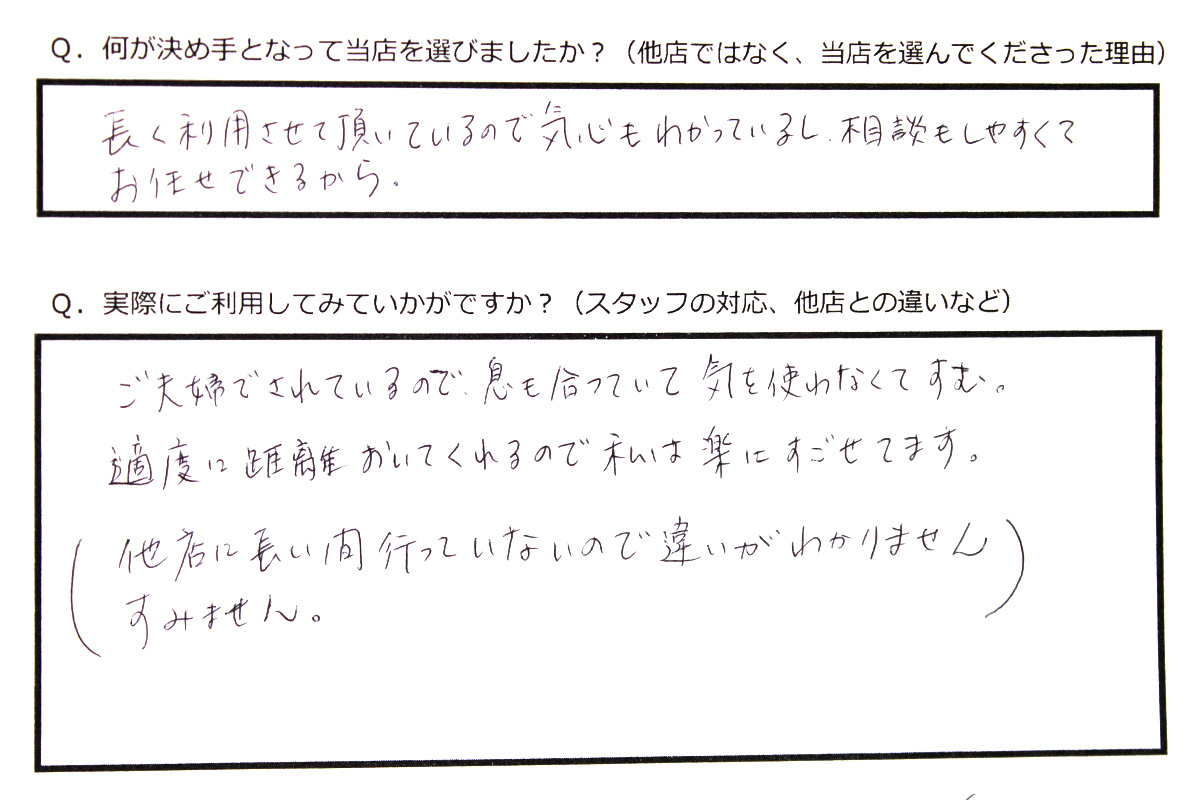 Q．何が決め手となって当店を選びましたか？（他店ではなく、当店を選んでくださった理由）
長く利用させて頂いているので気心もわかっているし、相談もしやすくて
お任せできるから。
Q．実際にご利用してみていかがですか？（スタッフの対応、他店との違いなど）
ご夫婦でされているので、息も合っていて気を使わなくてすむ。
適度に距離おいてくれるので私は楽にすごせてます。
（他店に長い間行っていないので違いがわかりません
すみません。）